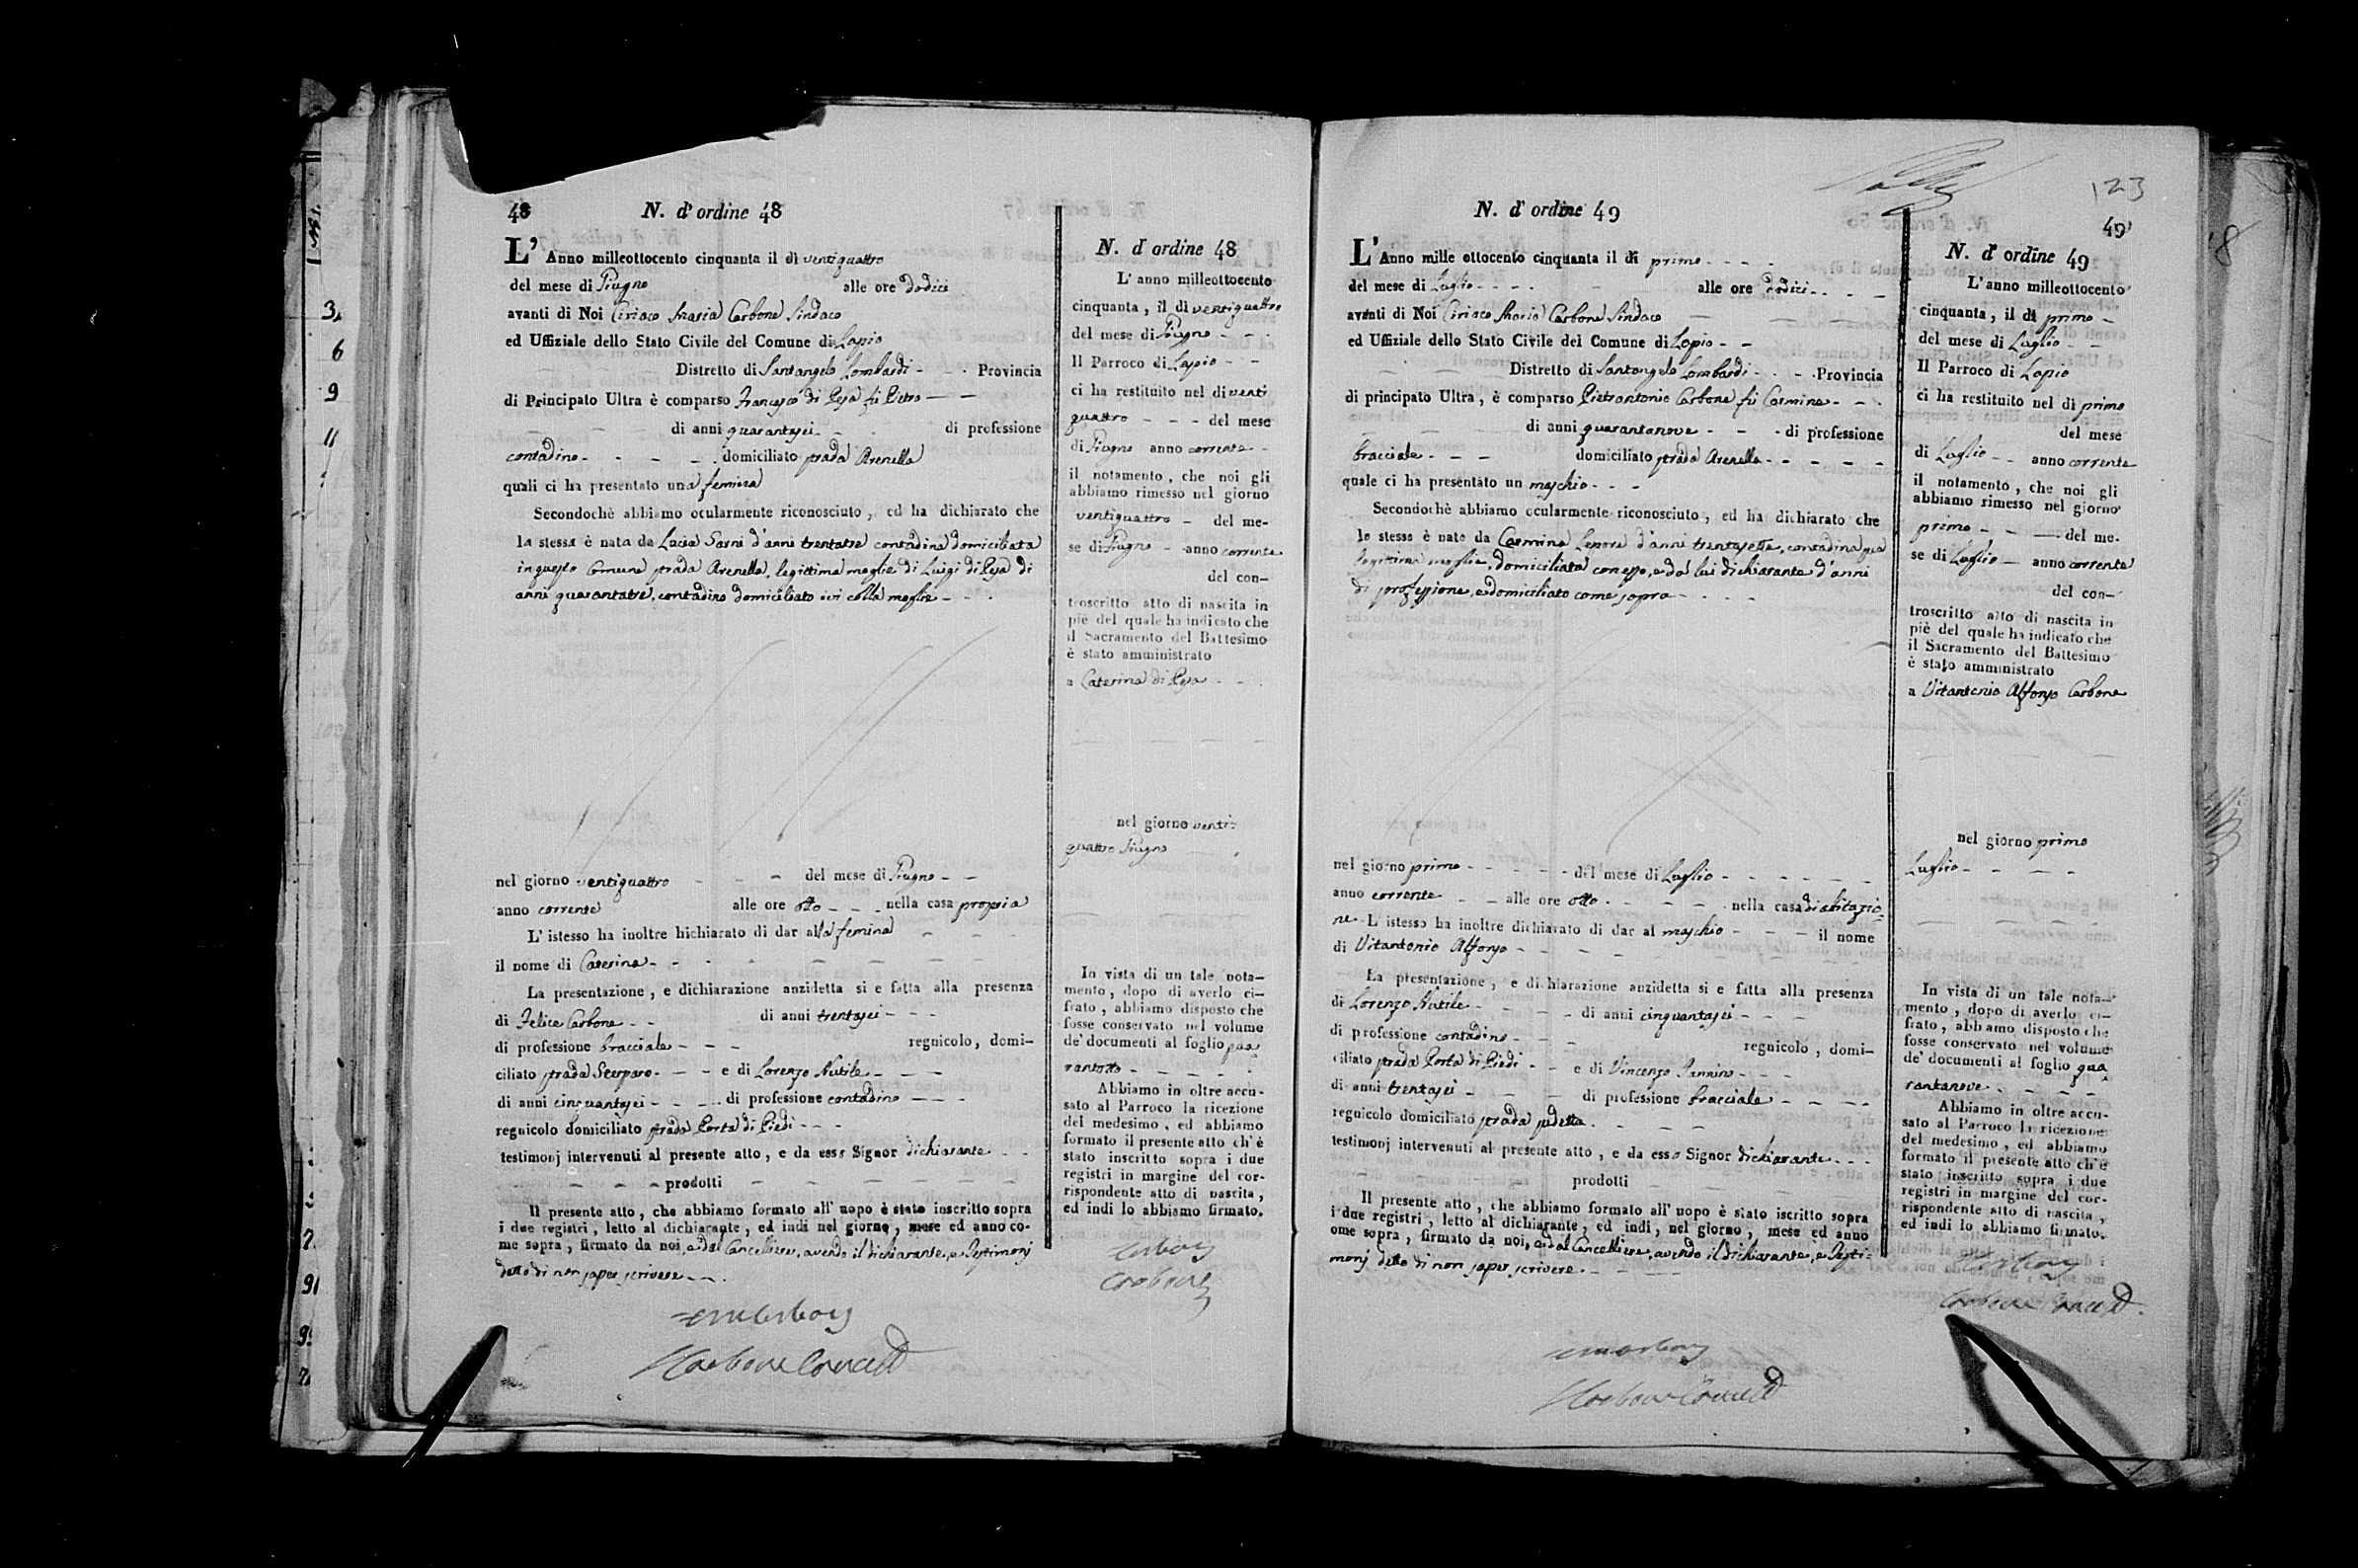 48
N. d' ordine 48
L' Anno milleottocento cinquanta il dì ventiquattro
del mese di Giugno alle ore dodici
avanti di Noi Ciriaco Maria Carbone Sindaco
ed Uffiziale dello Stato Civile del Comune di Lapio
Distretto di Santangelo Lombardi Provincia
di Principato Ultra è comparso Francesco di Pesa fù Pietro
di anni quarantasei di professione
contadino domiciliato strada Arenella
quali ci ha presentato una femina
Secondochè abbiamo ocularmente riconosciuto, ed ha dichiarato che
la stessa è nata da Lucia Sarni d'anni trentatre contadina domiciliata
in questo Comune strada Arenella, legittima moglie di Luigi di Pesa di
anni quarantatre, contadino domiciliato ivi colla moglie
nel giorno ventiquattro del mese di Giugno
anno corrente alle ore otto nella casa propria
L' istesso ha inoltre hichiarato di dar alla femina
il nome di Caterina
La presentazione, e dichiarazione anzidetta si e fatta alla presenza
di Felice Carbone di anni trentasei
di professione bracciale regnicolo, domi-
ciliato strada Scarparo e di Lorenzo Nutile
di anni cinquantasei di professione contadino
regnicolo domiciliato strada Porta di Piedi
testimonj intervenuti al presente atto, e da esso Signor dichiarante
prodotti
Il presente atto, che abbiamo formato all' uopo è stato inscritto sopra
i due registri, letto al dichiarante, ed indi nel giorno, mese ed anno co-
me sopra, firmato da noi, e dal Cancelliere, avendo il dichiarante, e Testimonj
detto di non saper scrivere
Carbone Cancell
N. d' ordine 48
L' anno milleottocento
cinquanta, il dì ventiquattro
del mese di Giugno
Il Parroco di Lapio
ci ha restituito nel dì venti
quattro del mese
di Giugno anno corrente
il notamento, che noi gli
abbiamo rimesso nel giorno
ventiquattro del me-
se di Giugno anno corrente
del con-
troscritto atto di nascita in
piè del quale ha indicato che
il Sacramento del Battesimo
è stato amministrato
a Caterina di Pesa
nel giorno venti:
quattro Giugno
In vista di un tale nota-
mento, dopo di averlo ci-
frato, abbiamo disposto che
fosse conservato nel volume
de' documenti al foglio qua
rantotto
Abbiamo in oltre accu-
sato al Parroco la ricezione
del medesimo, ed abbiamo
formato il presente atto ch' è
stato inscritto sopra i due
registri in margine del cor-
rispondente atto di nascita,
ed indi lo abbiamo firmato.
Carbone
Carbone
123
49
N. d' ordine 49
L' Anno mille ottocento cinquanta il dì primo
del mese di Luglio alle ore dodici
avanti di Noi Ciriaco Maria Carbone Sindaco
ed Uffiziale dello Stato Civile del Comune di Lapio
Distretto di Santangelo Lombardi Provincia
di principato Ultra, è comparso Pietrantonio Carbone fù Carmine
di anni quarantanove di professione
bracciale domiciliato strada Arenella
quale ci ha presentato un maschio
Secondochè abbiamo ocularmente riconosciuto, ed ha dichiarato che
lo stesso è nato da Carmina Lepore d'anni trentasette, contadina sua
legittima moglie, domiciliata con esso, e da lui dichiarante d'anni
di professione, e domiciliato come sopra
nel giorno primo del mese di Luglio
anno corrente alle ore otto nella casa di abitazio:
ne L' istesso ha inoltre dichiarato di dar al maschio il nome
di Vitantonio Alfonso
La presentazione, e dichiarazione anzidetta si e fatta alla presenza
di Lorenzo Nutile di anni cinquantasei
di professione contadino regnicolo, domi-
ciliato strada Porta di Piedi e di Vincenzo Iannino
di anni trentasei di professione bracciale
regnicolo domiciliato strada sudetta
testimonj intervenuti al presente atto, e da esso Signor dichiarante
prodotti
Il presente atto, che abbiamo formato all' uopo è stato iscritto sopra
i due registri, letto al dichiarante, ed indi, nel giorno, mese ed anno
ome sopra, firmato da noi, e dal Cancelliere, avendo il dichiarante, e Testi:
monj detto di non saper scrivere
Carbone Cancell
N. d' ordine 49
L' anno milleottocento
cinquanta, il dì primo
del mese di Luglio
Il Parroco di Lapio
ci ha restituito nel dì primo
del mese
di Luglio anno corrente
il notamento, che noi gli
abbiamo rimesso nel giorno
primo del me-
se di Luglio anno corrente
del con-
troscritto atto di nascita in
piè del quale ha indicato che
il Sacramento del Battesimo
è stato amministrato
a Vitantonio Alfonso Carbone
nel giorno primo
Luglio
In vista di un tale nota-
mento, dopo di averlo ci-
frato, abbiamo disposto che
fosse conservato nel volume
de' documenti al foglio qua
rantanove
Abbiamo in oltre accu-
sato al Parroco la ricezione
del medesimo, ed abbiamo
formato il presente atto ch' è
stato inscritto sopra i due
registri in margine del cor-
rispondente atto di nascita,
ed indi lo abbiamo firmato.
Carbone
Carbone Cancell